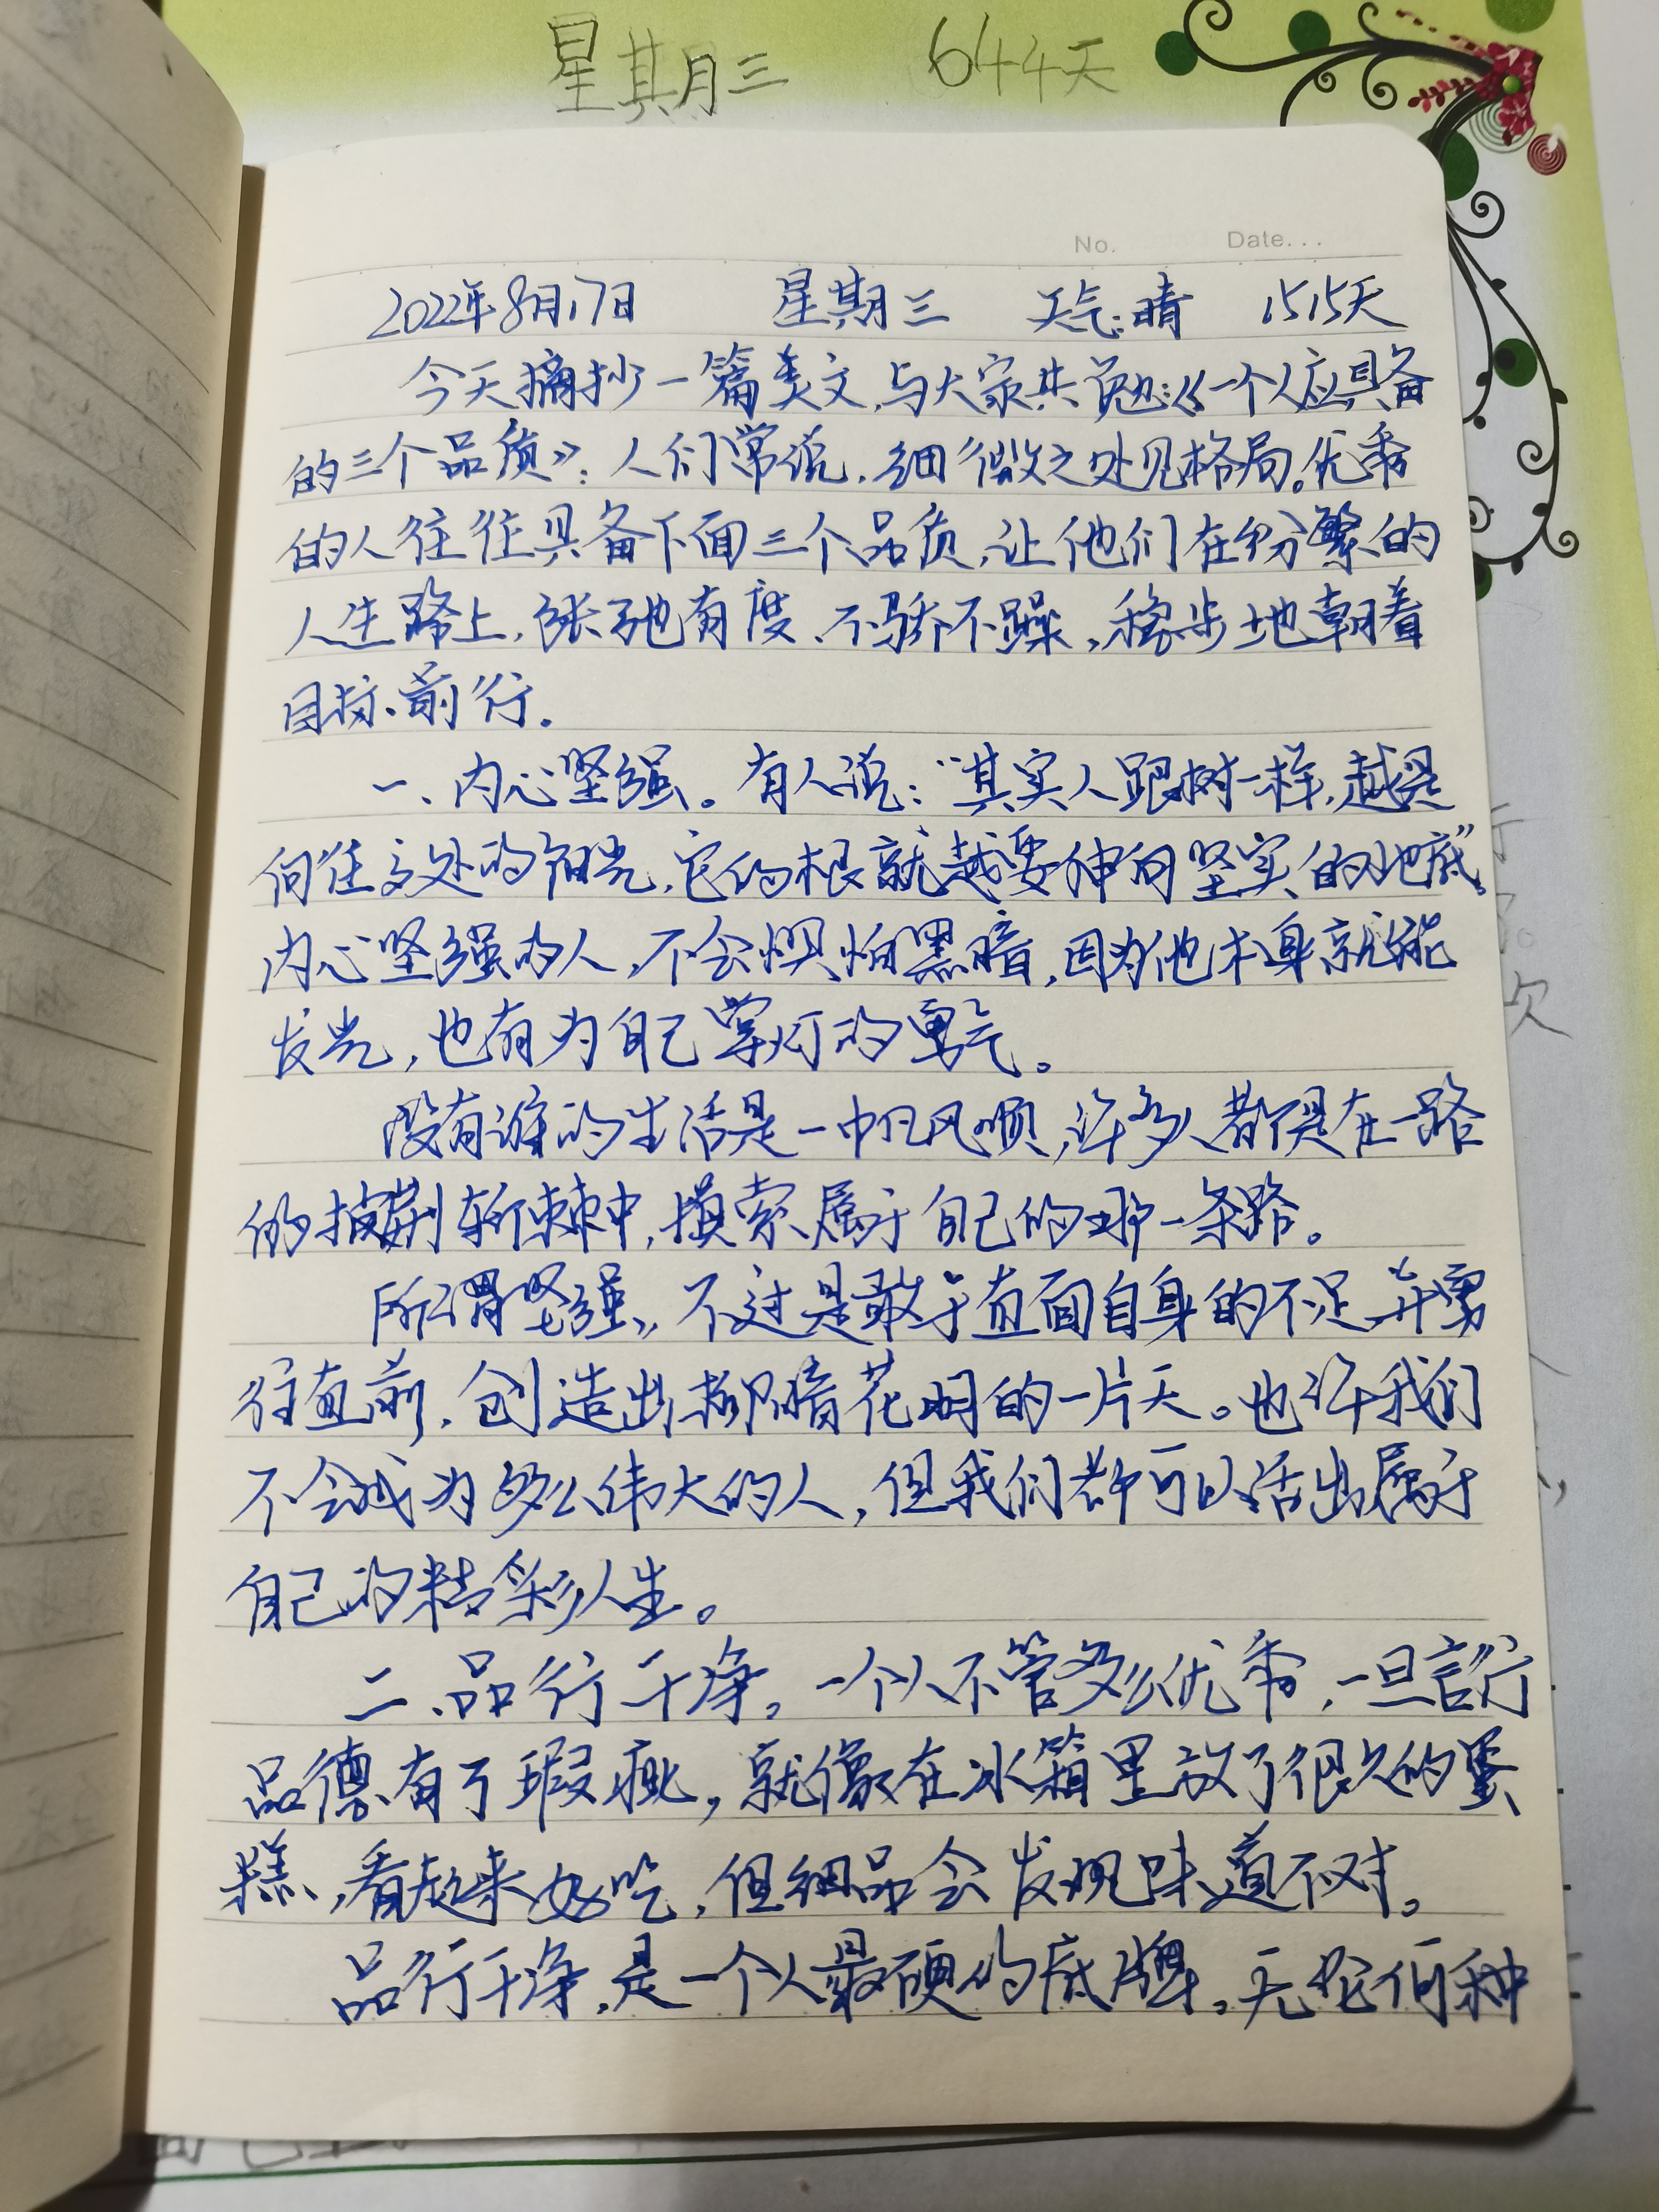 星期三 644天
No. Date...
2022年8月17日 星期三 天气:晴 1515天
今天摘抄一篇美文,与大家共勉:《一个人应具备
的三个品质》:人们常说,细微之处见格局。优秀
的人往往具备下面三个品质,让他们在纷繁的
人生路上,张弛有度、不骄不躁,稳步地朝着
目标前行。
一、内心坚强。有人说:“其实人跟树一样,越是
向往高处的阳光,它的根就越要伸向坚实的地底”。
内心坚强的人,不会惧怕黑暗,因为他本身就能
发光,也有为自己掌灯的勇气。
没有谁的生活是一帆风顺,许多人都是在一路
的披荆斩棘中,摸索属于自己的那一条路。
所谓坚强,不过是敢于直面自身的不足,并勇
往直前,创造出柳暗花明的一片天。也许我们
不会成为多么伟大的人,但我们都可以活出属于
自己的精彩人生。
二、品行干净。一个人不管多么优秀,一旦言行
品德有了瑕疵,就像在冰箱里放了很久的蛋
糕,看起来好吃,但细品会发现味道不对。
品行干净,是一个人最硬的底牌。无论何种
次